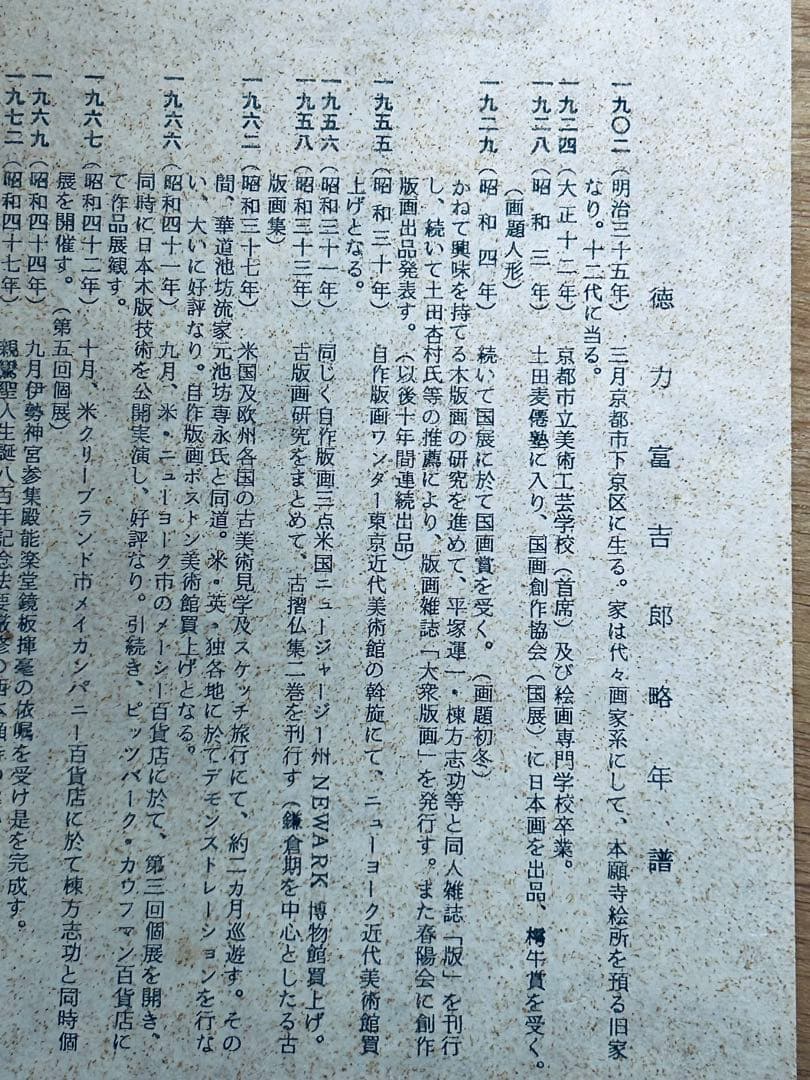 徳力富吉郎略年譜
一九〇二（明治三十五年）　三月京都市下京区に生る。家は代々画家系にして、本願寺絵所を預る旧家
なり。十二代に当る。
一九二四（大正十二年）　京都市立美術工芸学校（首席）及び絵画専門学校卒業。
一九二八（昭和三年）　土田麦僊塾に入り、国画創作協会（国展）に日本画を出品、樗牛賞を受く。
（画題人形）
一九二九（昭和四年）　続いて国展に於て国画賞を受く。（画題初冬）
かねて興味を持てる木版画の研究を進めて、平塚運一・棟方志功等と同人雑誌「版」を刊行
し、続いて土田杏村氏等の推薦により、版画雑誌「大衆版画」を発行す。また春陽会に創作
版画出品発表す。（以後十年間連続出品）
一九五五（昭和三十年）　自作版画ワンター東京近代美術館の斡旋にて、ニューヨーク近代美術館買
上げとなる。
一九五六（昭和三十一年）　同じく自作版画三点米国ニュージャージー州 NEWARK 博物館買上げ。
一九五八（昭和三十三年）　古版画研究をまとめて、古摺仏集二巻を刊行す（鎌倉期を中心としたる古
版画集）
一九六二（昭和三十七年）　米国及欧州各国の古美術見学及スケッチ旅行にて、約二カ月巡遊す。その
間、華道池坊流家元池坊専永氏と同道。米・英・独各地に於てデモンストレーションを行な
い、大いに好評なり。自作版画ボストン美術館買上げとなる。
一九六六（昭和四十一年）　九月、米・ニューヨーク市のメーシー百貨店に於て、第三回個展を開き、
同時に日本木版技術を公開実演し、好評なり。引続き、ピッツバーク・カウフマン百貨店に
て作品展観す。
一九六七（昭和四十二年）　十月、米クリーブランド市メイカンパニー百貨店に於て棟方志功と同時個
展を開催す。（第五回個展）
一九六九（昭和四十四年）　九月伊勢神宮参集殿能楽堂鏡板揮毫の依嘱を受け是を完成す。
一九七二（昭和四十七年）　親鸞聖人生誕八百年記念法要